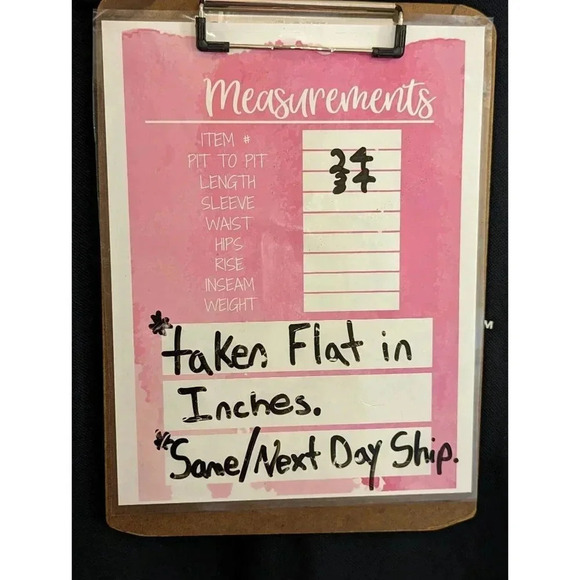 Measurements
ITEM #
PIT TO PIT 24
LENGTH 34
SLEEVE
WAIST
HIPS
RISE
INSEAM
WEIGHT
*taken Flat in
Inches.
*Same/Next Day Ship.
M